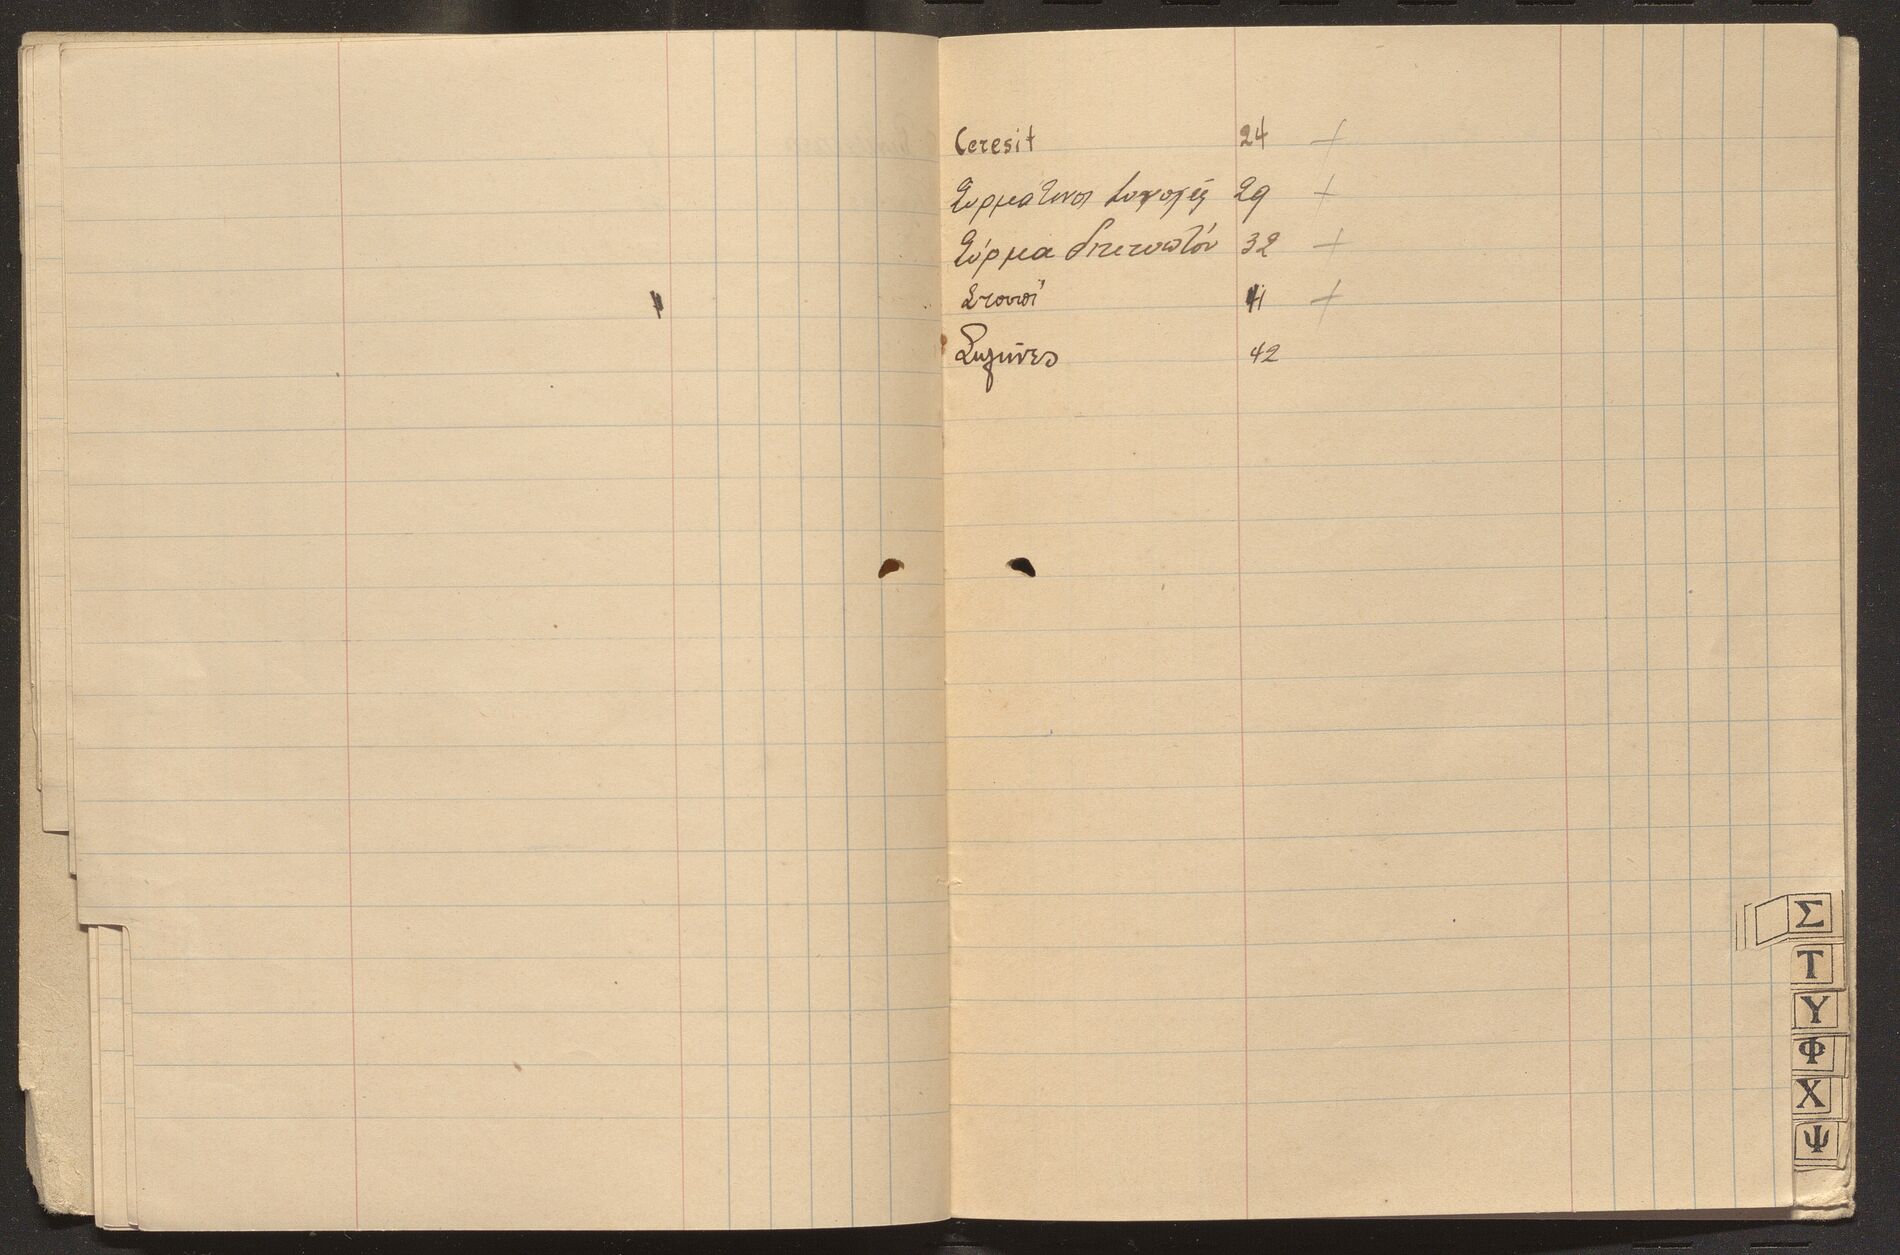 Ceresit 24 +
Συρμάτινοι 29 +
Σύρμα δικτυωτόν 32 +
Στουπί 41 +
Σωλῆνες 42
Σ
Τ
Υ
Φ
Χ
Ψ